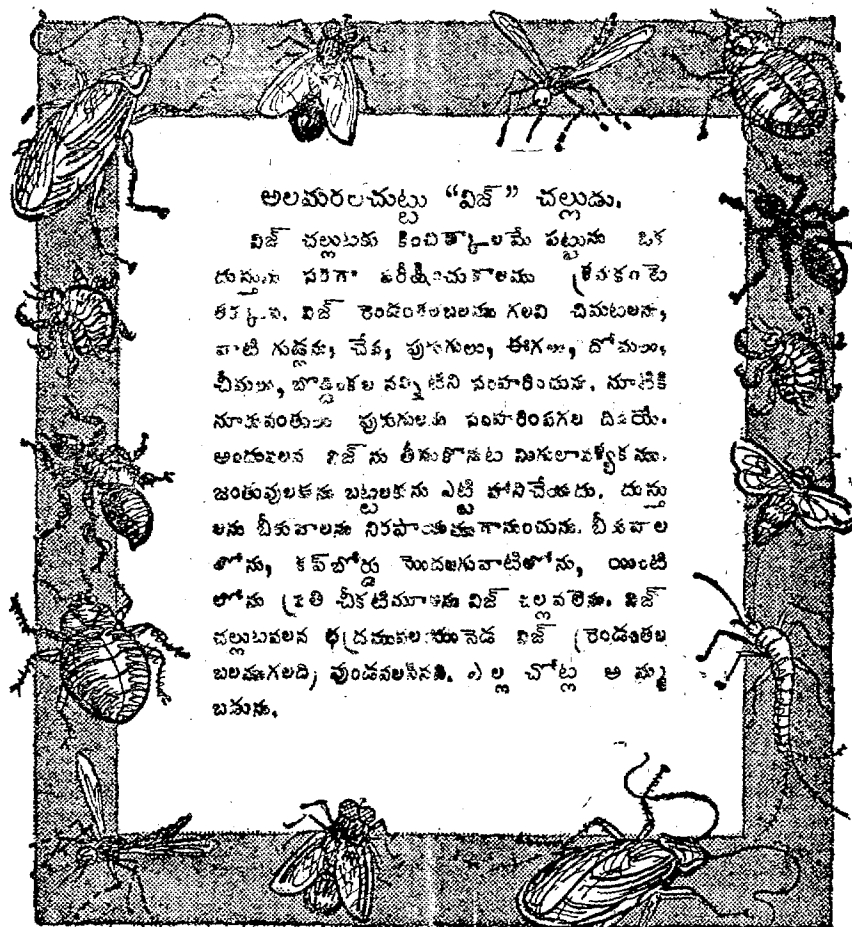 అలమరలచుట్టు “విజ్” చల్లుడు.
విజ్ చల్లుటకు కించిత్కాలమే పట్టును ఒక
దుస్తును సరిగా పరీక్షించుకాలము
తక్కువ. విజ్ రెండంతలబలము గలవి చిమటలను,
వాటి గుడ్లను, చేప, పురుగులు, ఈగలు, దోమలు,
చీమలు, బొద్దింకల నన్నిటిని సంహరించును. నూటికి
నూరువంతులు పురుగులను సంహరింపగల దిదియే.
అందువలన విజ్ ను తీసుకొనుట మిగులావశ్యకము.
జంతువులకును బట్టలకును ఎట్టి హానిచేయదు. దుస్తు
లను బీరువాలను నిరపాయముగానుంచును. బీరువాల
లోను, కప్‌బోర్డు మొదలగువాటిలోను, యింటి
లోను ప్రతి చీకటిమూలను విజ్ చల్లవలెను. విజ్
చల్లుటవలన భద్రమువలయునెడ విజ్ (రెండంతల
బలముగలది) వుండవలసినది. ఎల్ల చోట్ల అమ్మ
బడును.